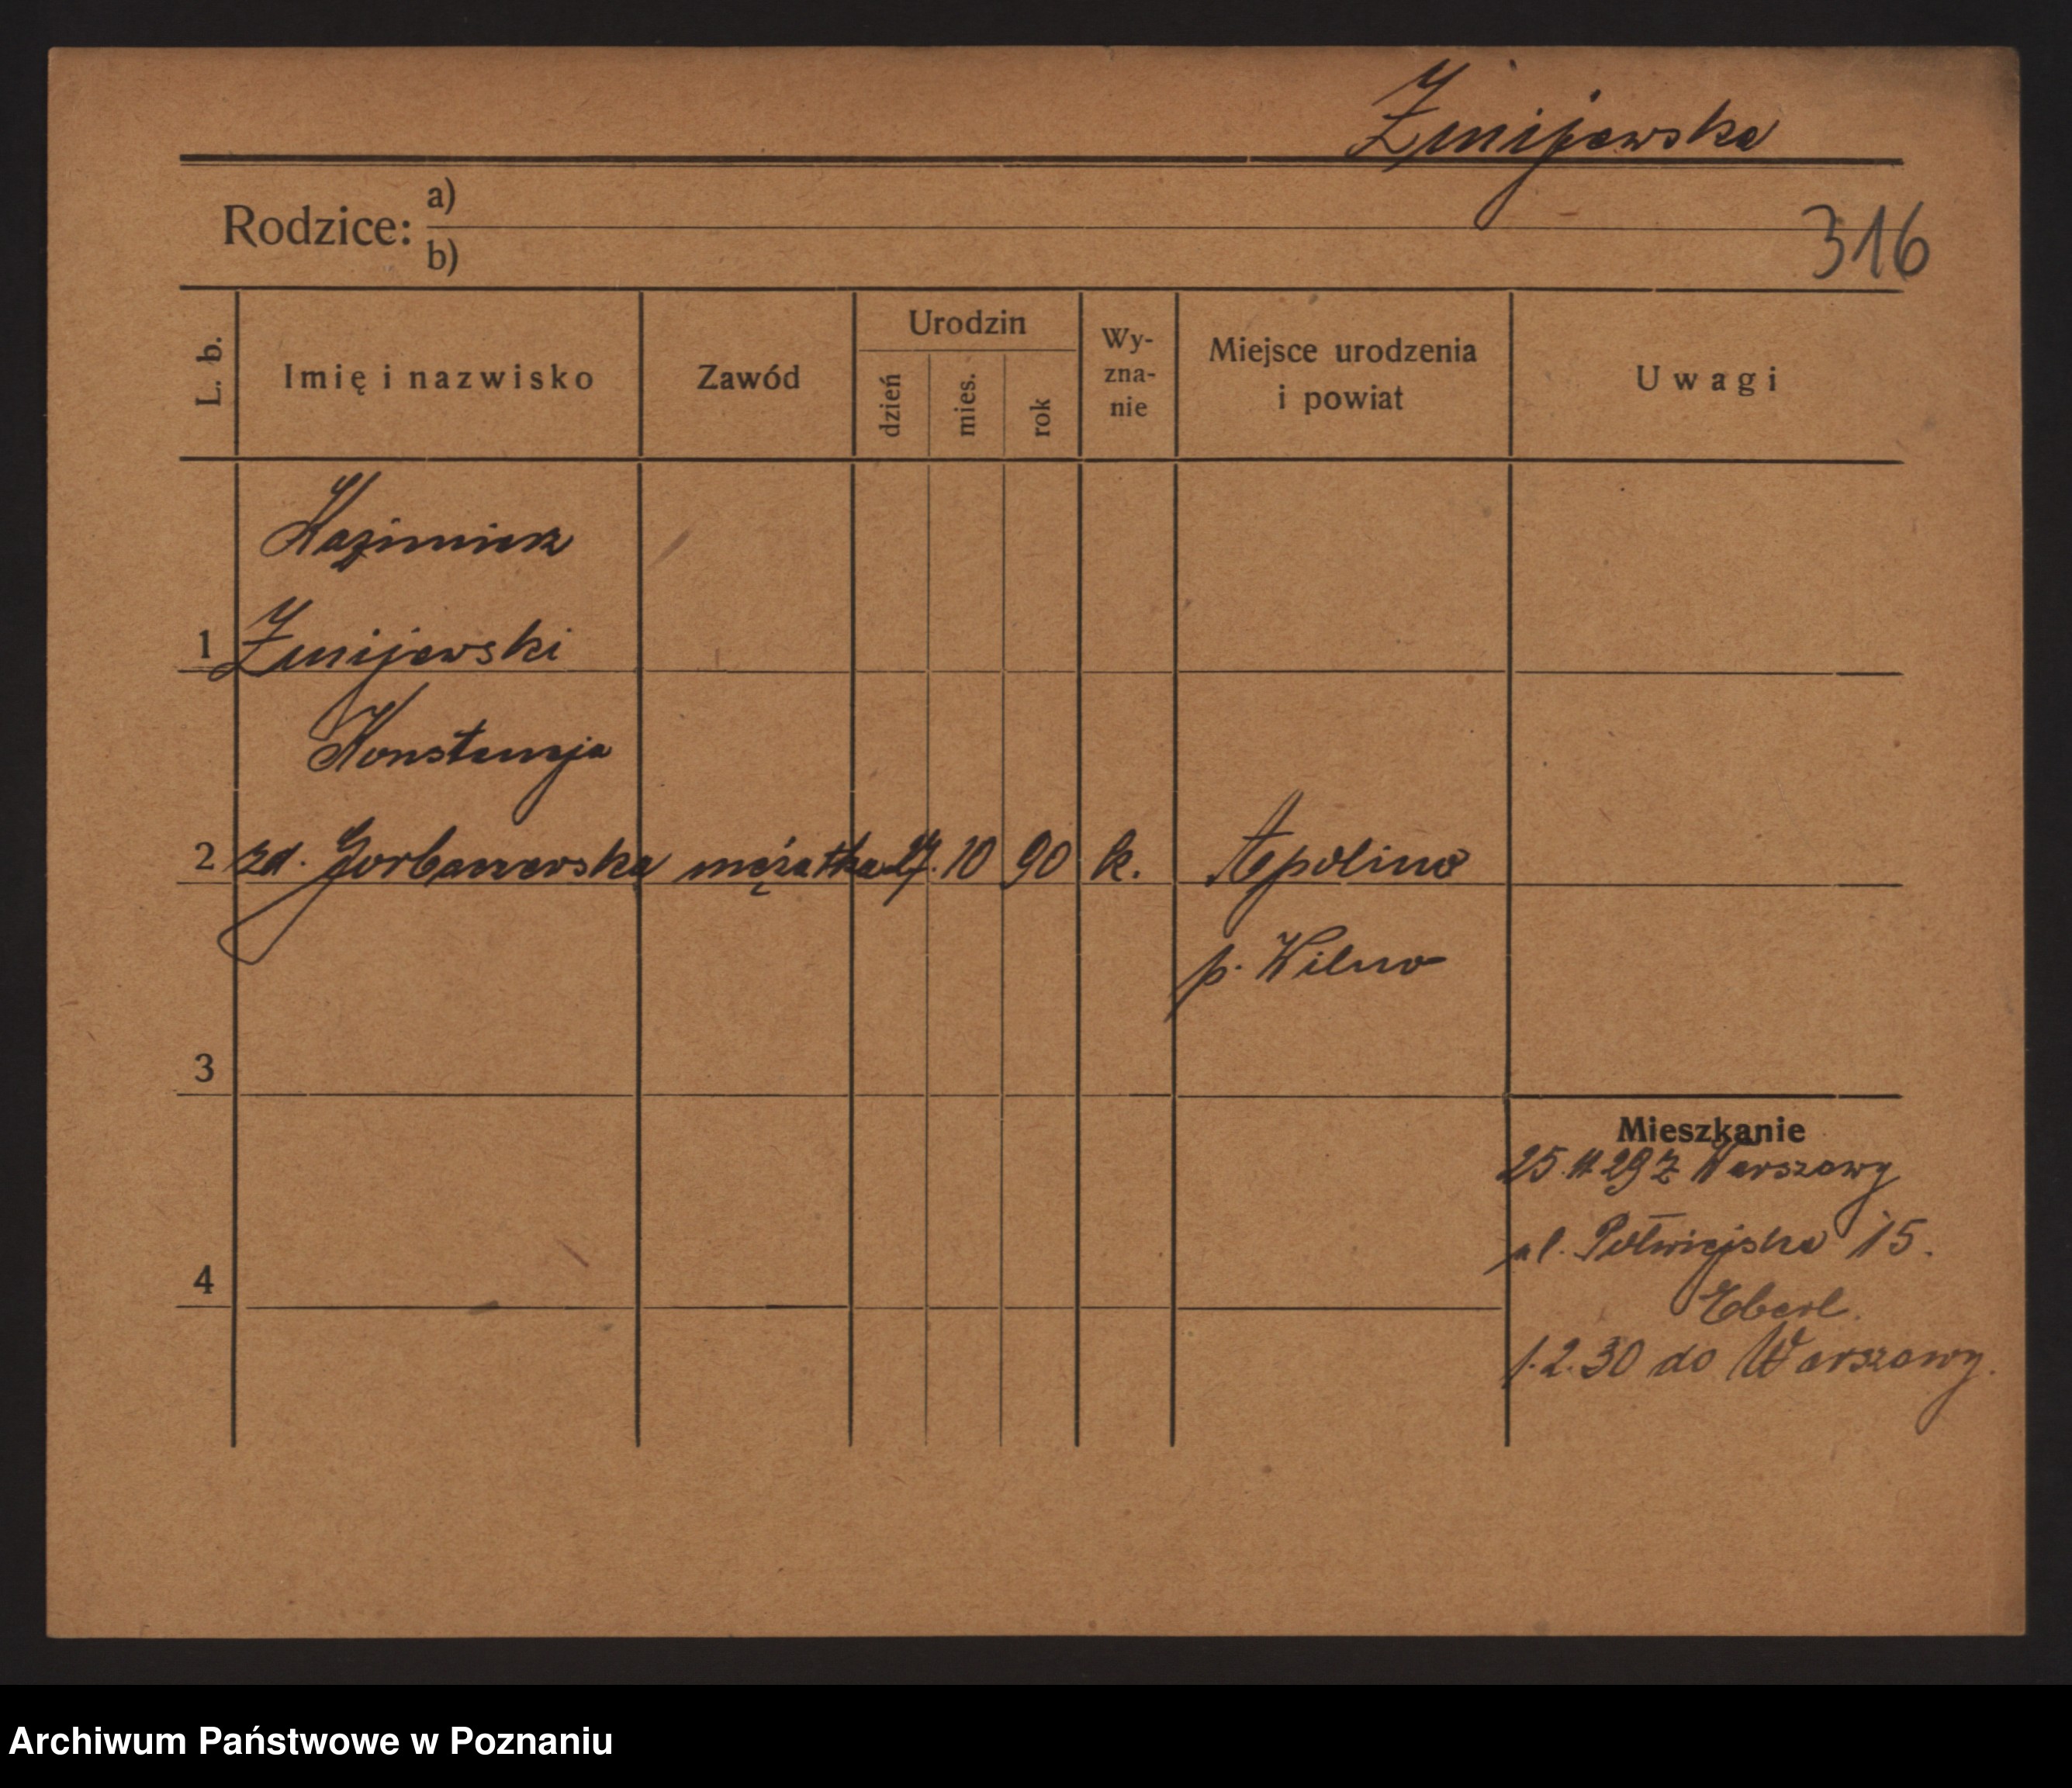 Żmijewska
Rodzice: a)
b)
316
L. b.
Imię i nazwisko
Zawód
Urodzin
dzień
mies.
rok
Wy-
zna-
nie
Miejsce urodzenia
i powiat
Uwagi
Kazimierz
1 Żmijewski
Konstancja
2 zd. Gorbaczewska mężatka 27. 10 90 k. Apolino
p. Wilno
3
Mieszkanie
25. 11 29 z Warszawy
ul. Półwiejska 15.
4
Eberl.
1.2.30 do Warszawy.
Archiwum Państwowe w Poznaniu